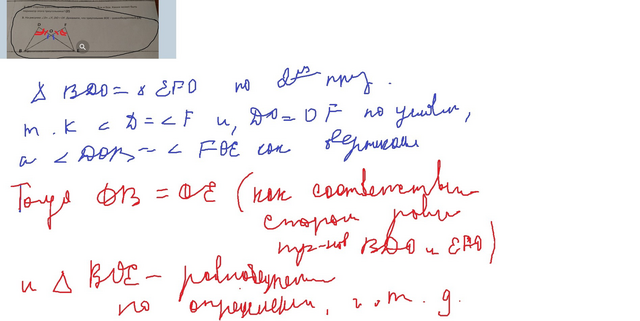 Δ BDO = Δ EFO по 2му приз.
т.к ∠D = ∠F и, DO = OF по услови,
а ∠DOB = ∠FOE как вертикал
Тогда OB = OE (как соответствен
сторон равн
тр-ков BDO и EFO)
и Δ BOE - равнобедрен
по определени, ч.т.д.